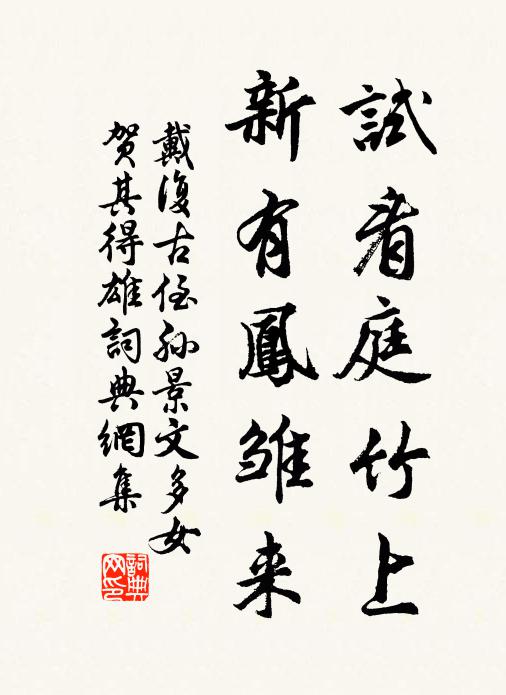 試看庭竹上
新有鳳雛来
戴復古侄孙景文多女
贺其得雄詞典網集
詞典网印